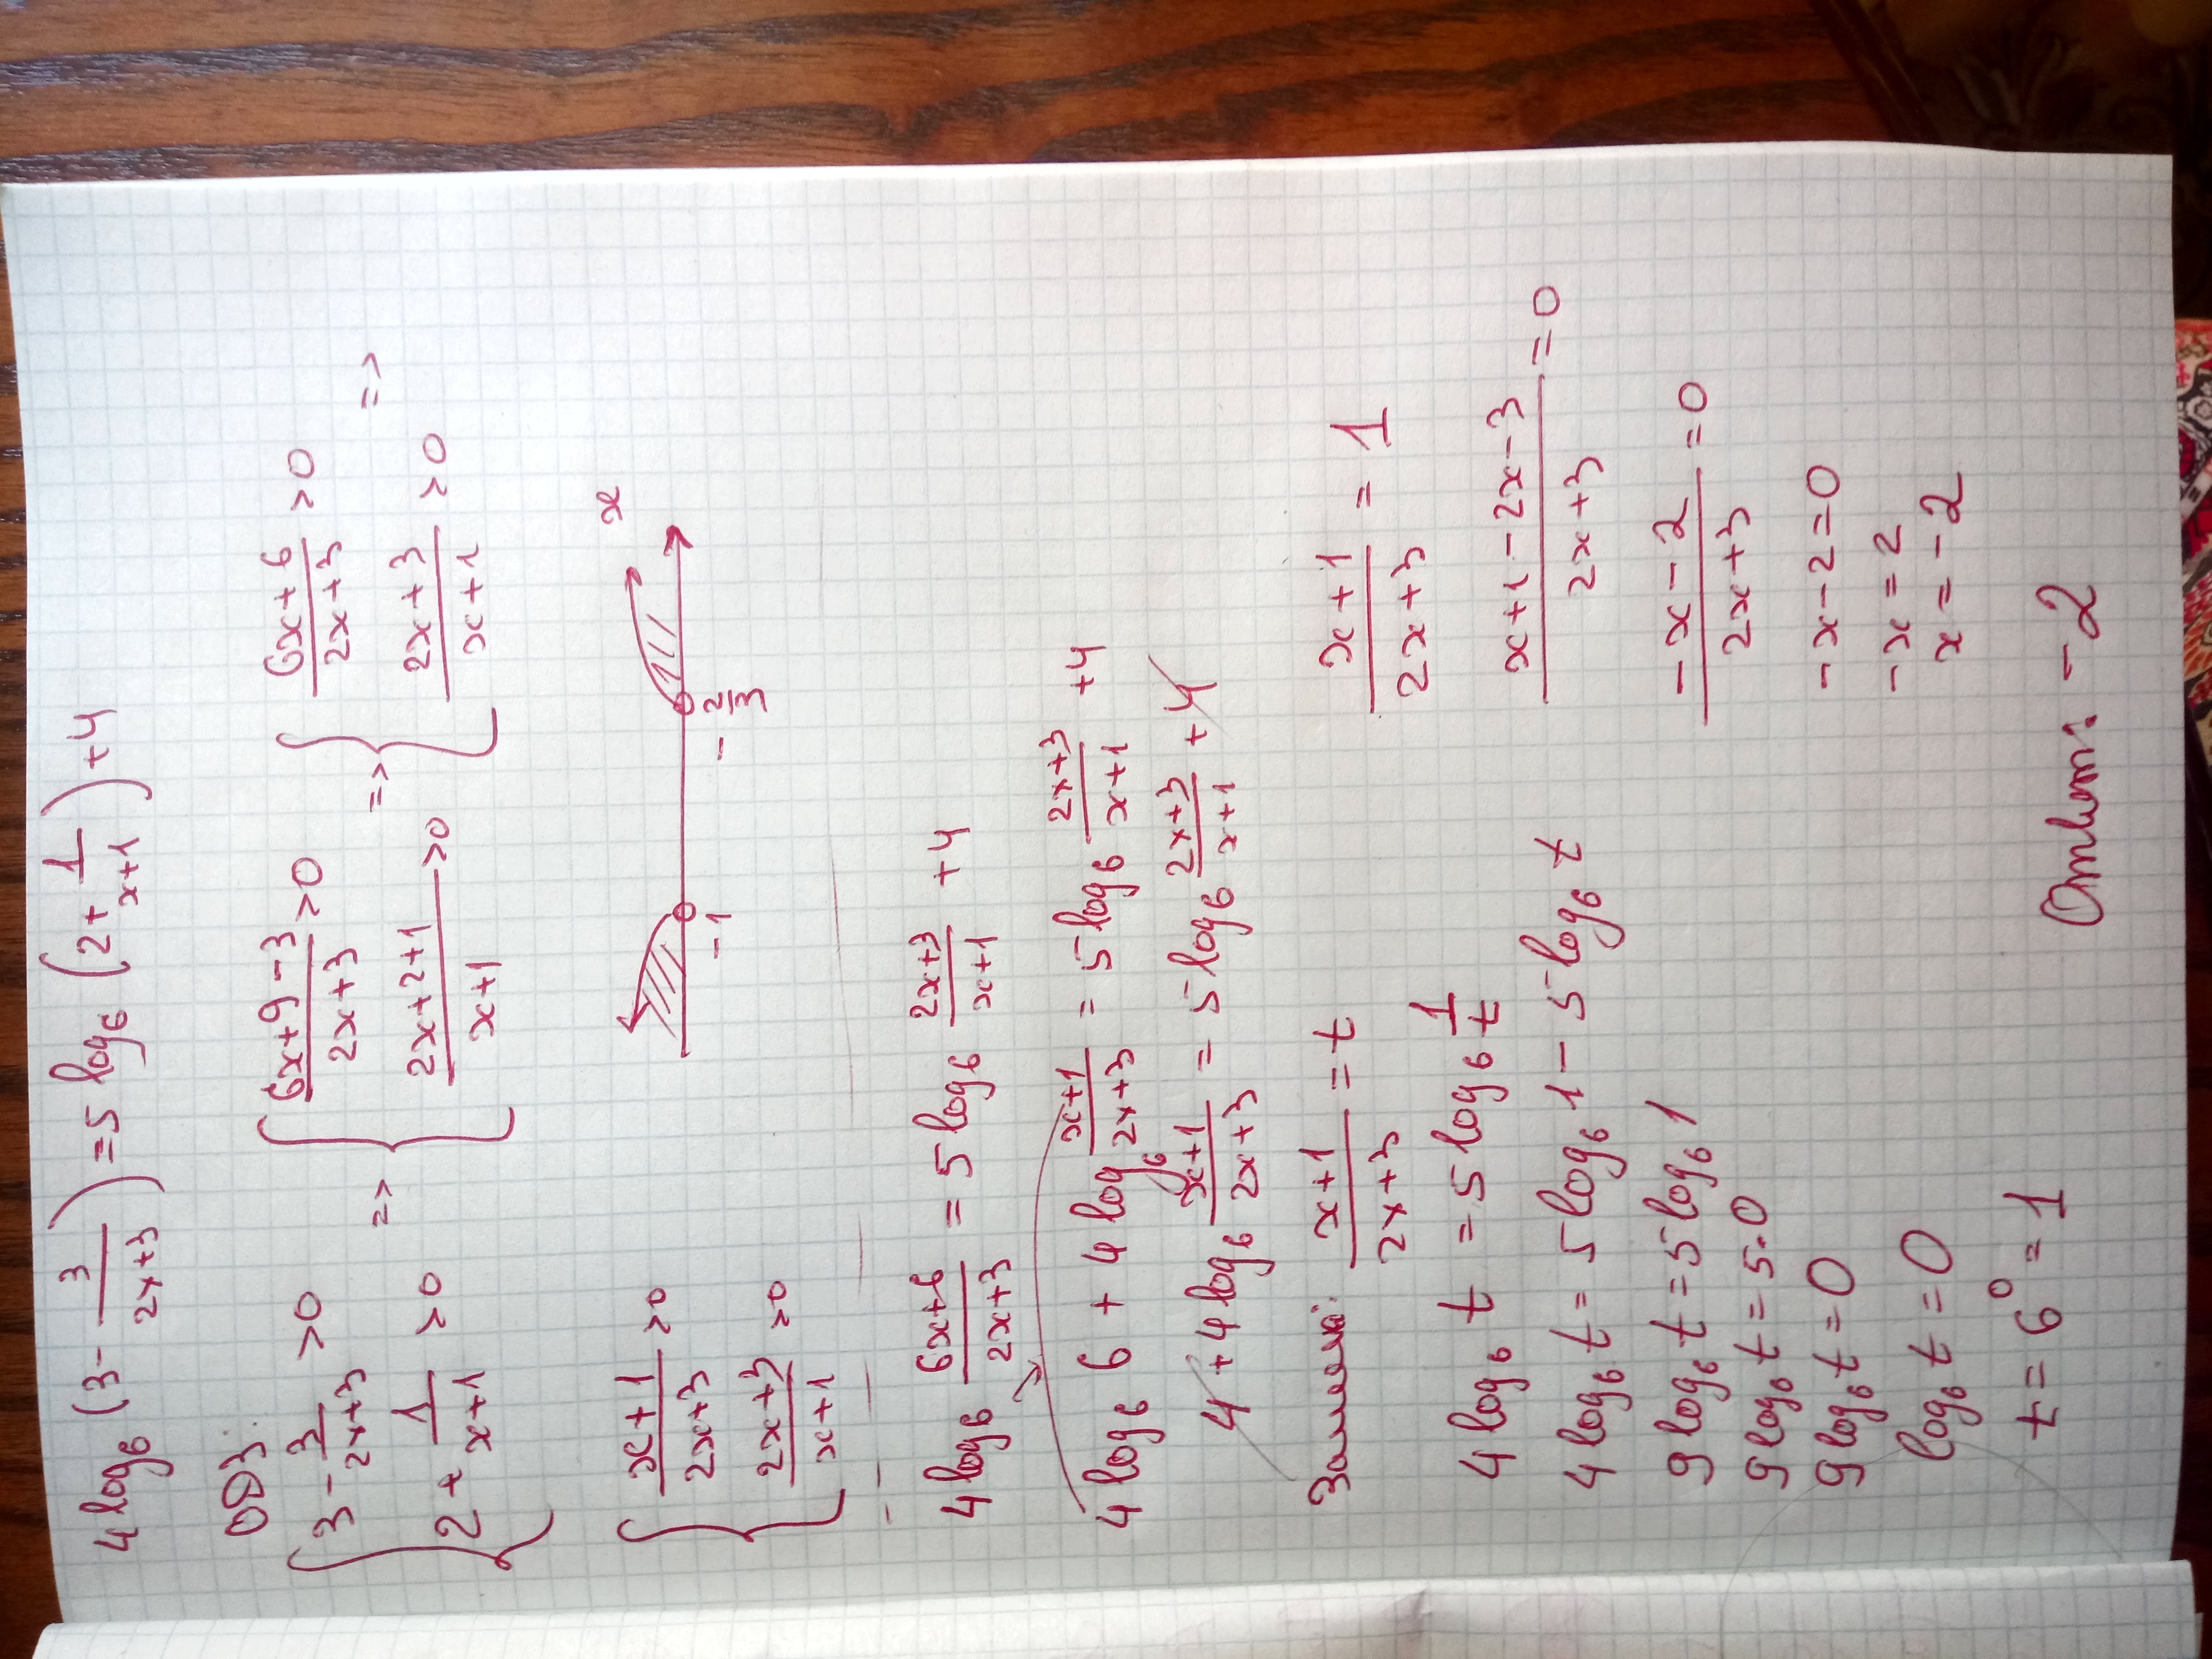 4 log₆ (3 - 3/(2x+3)) = 5 log₆ (2 + 1/(x+1)) + 4
ОДЗ:
{ 3 - 3/(2x+3) > 0 ; 2 + 1/(x+1) > 0 => { (6x+9-3)/(2x+3) > 0 ; (2x+2+1)/(x+1) > 0 => { (6x+6)/(2x+3) > 0 ; (2x+3)/(x+1) > 0 =>
{ (x+1)/(2x+3) > 0 ; (2x+3)/(x+1) > 0
-1 -2/3 x
4 log₆ (6x+6)/(2x+3) = 5 log₆ (2x+3)/(x+1) + 4
4 log₆ 6 + 4 log₆ (x+1)/(2x+3) = 5 log₆ (2x+3)/(x+1) + 4
4 + 4 log₆ (x+1)/(2x+3) = 5 log₆ (2x+3)/(x+1) + 4
Замена: (x+1)/(2x+3) = t
4 log₆ t = 5 log₆ 1/t
4 log₆ t = 5 log₆ 1 - 5 log₆ t
9 log₆ t = 5 log₆ 1
9 log₆ t = 5·0
9 log₆ t = 0
log₆ t = 0
t = 6⁰ = 1
(x+1)/(2x+3) = 1
(x+1-2x-3)/(2x+3) = 0
(-x-2)/(2x+3) = 0
-x-2=0
-x=2
x=-2
Ответ: -2